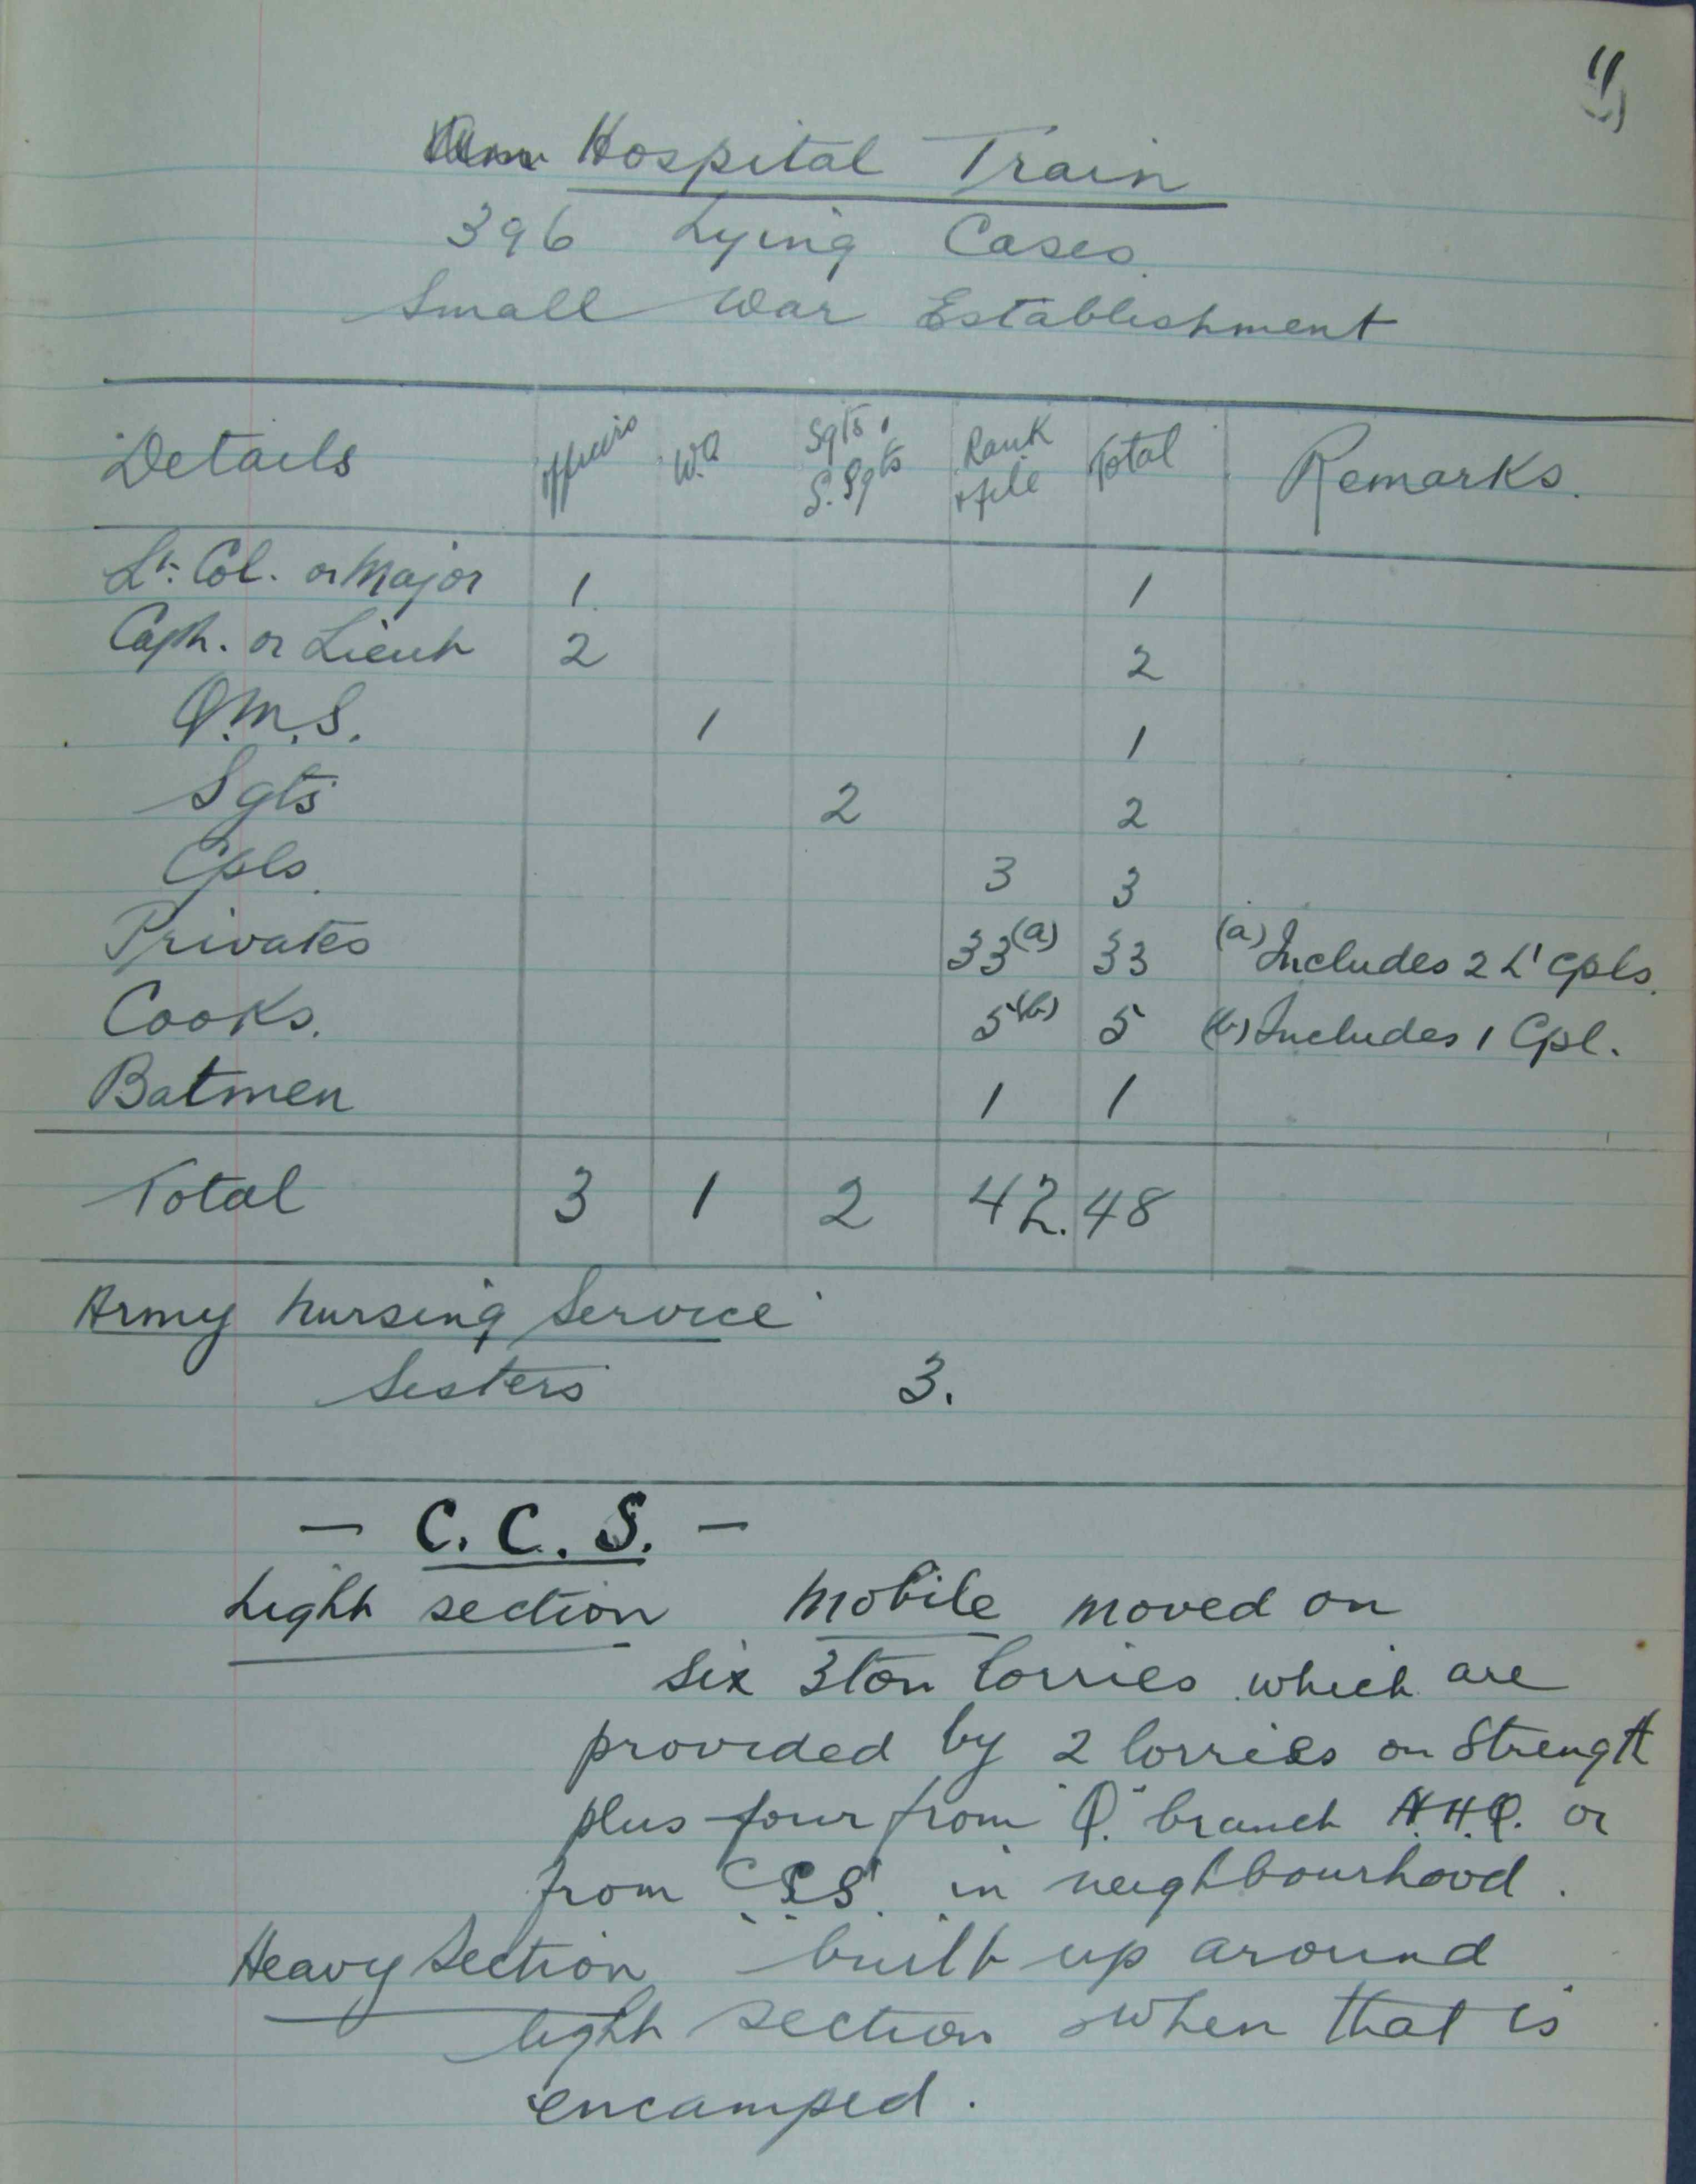 Hospital Train
396 Lying Cases.
Small War Establishment
Details Officers W.O Sgts. S. Sgts Rank & file Total Remarks.
Lt. Col. or Major 1 1
Capt. or Lieut 2 2
Q.M.S. 1 1
Sgts 2 2
Cpls. 3 3
Privates 33(a) 33 (a) Includes 2 L' Cpls.
Cooks. 5(b) 5 (b) Includes 1 Cpl.
Batmen 1 1
Total 3 1 2 42. 48
Army Nursing Service
Sisters 3.
— C. C. S. —
Light section Mobile moved on
six 3ton lorries which are
provided by 2 lorries on Strength
plus four from "Q." branch A.H.Q. or
from C.C.S' in neighbourhood.
Heavy Section built up around
light section when that is
encamped.